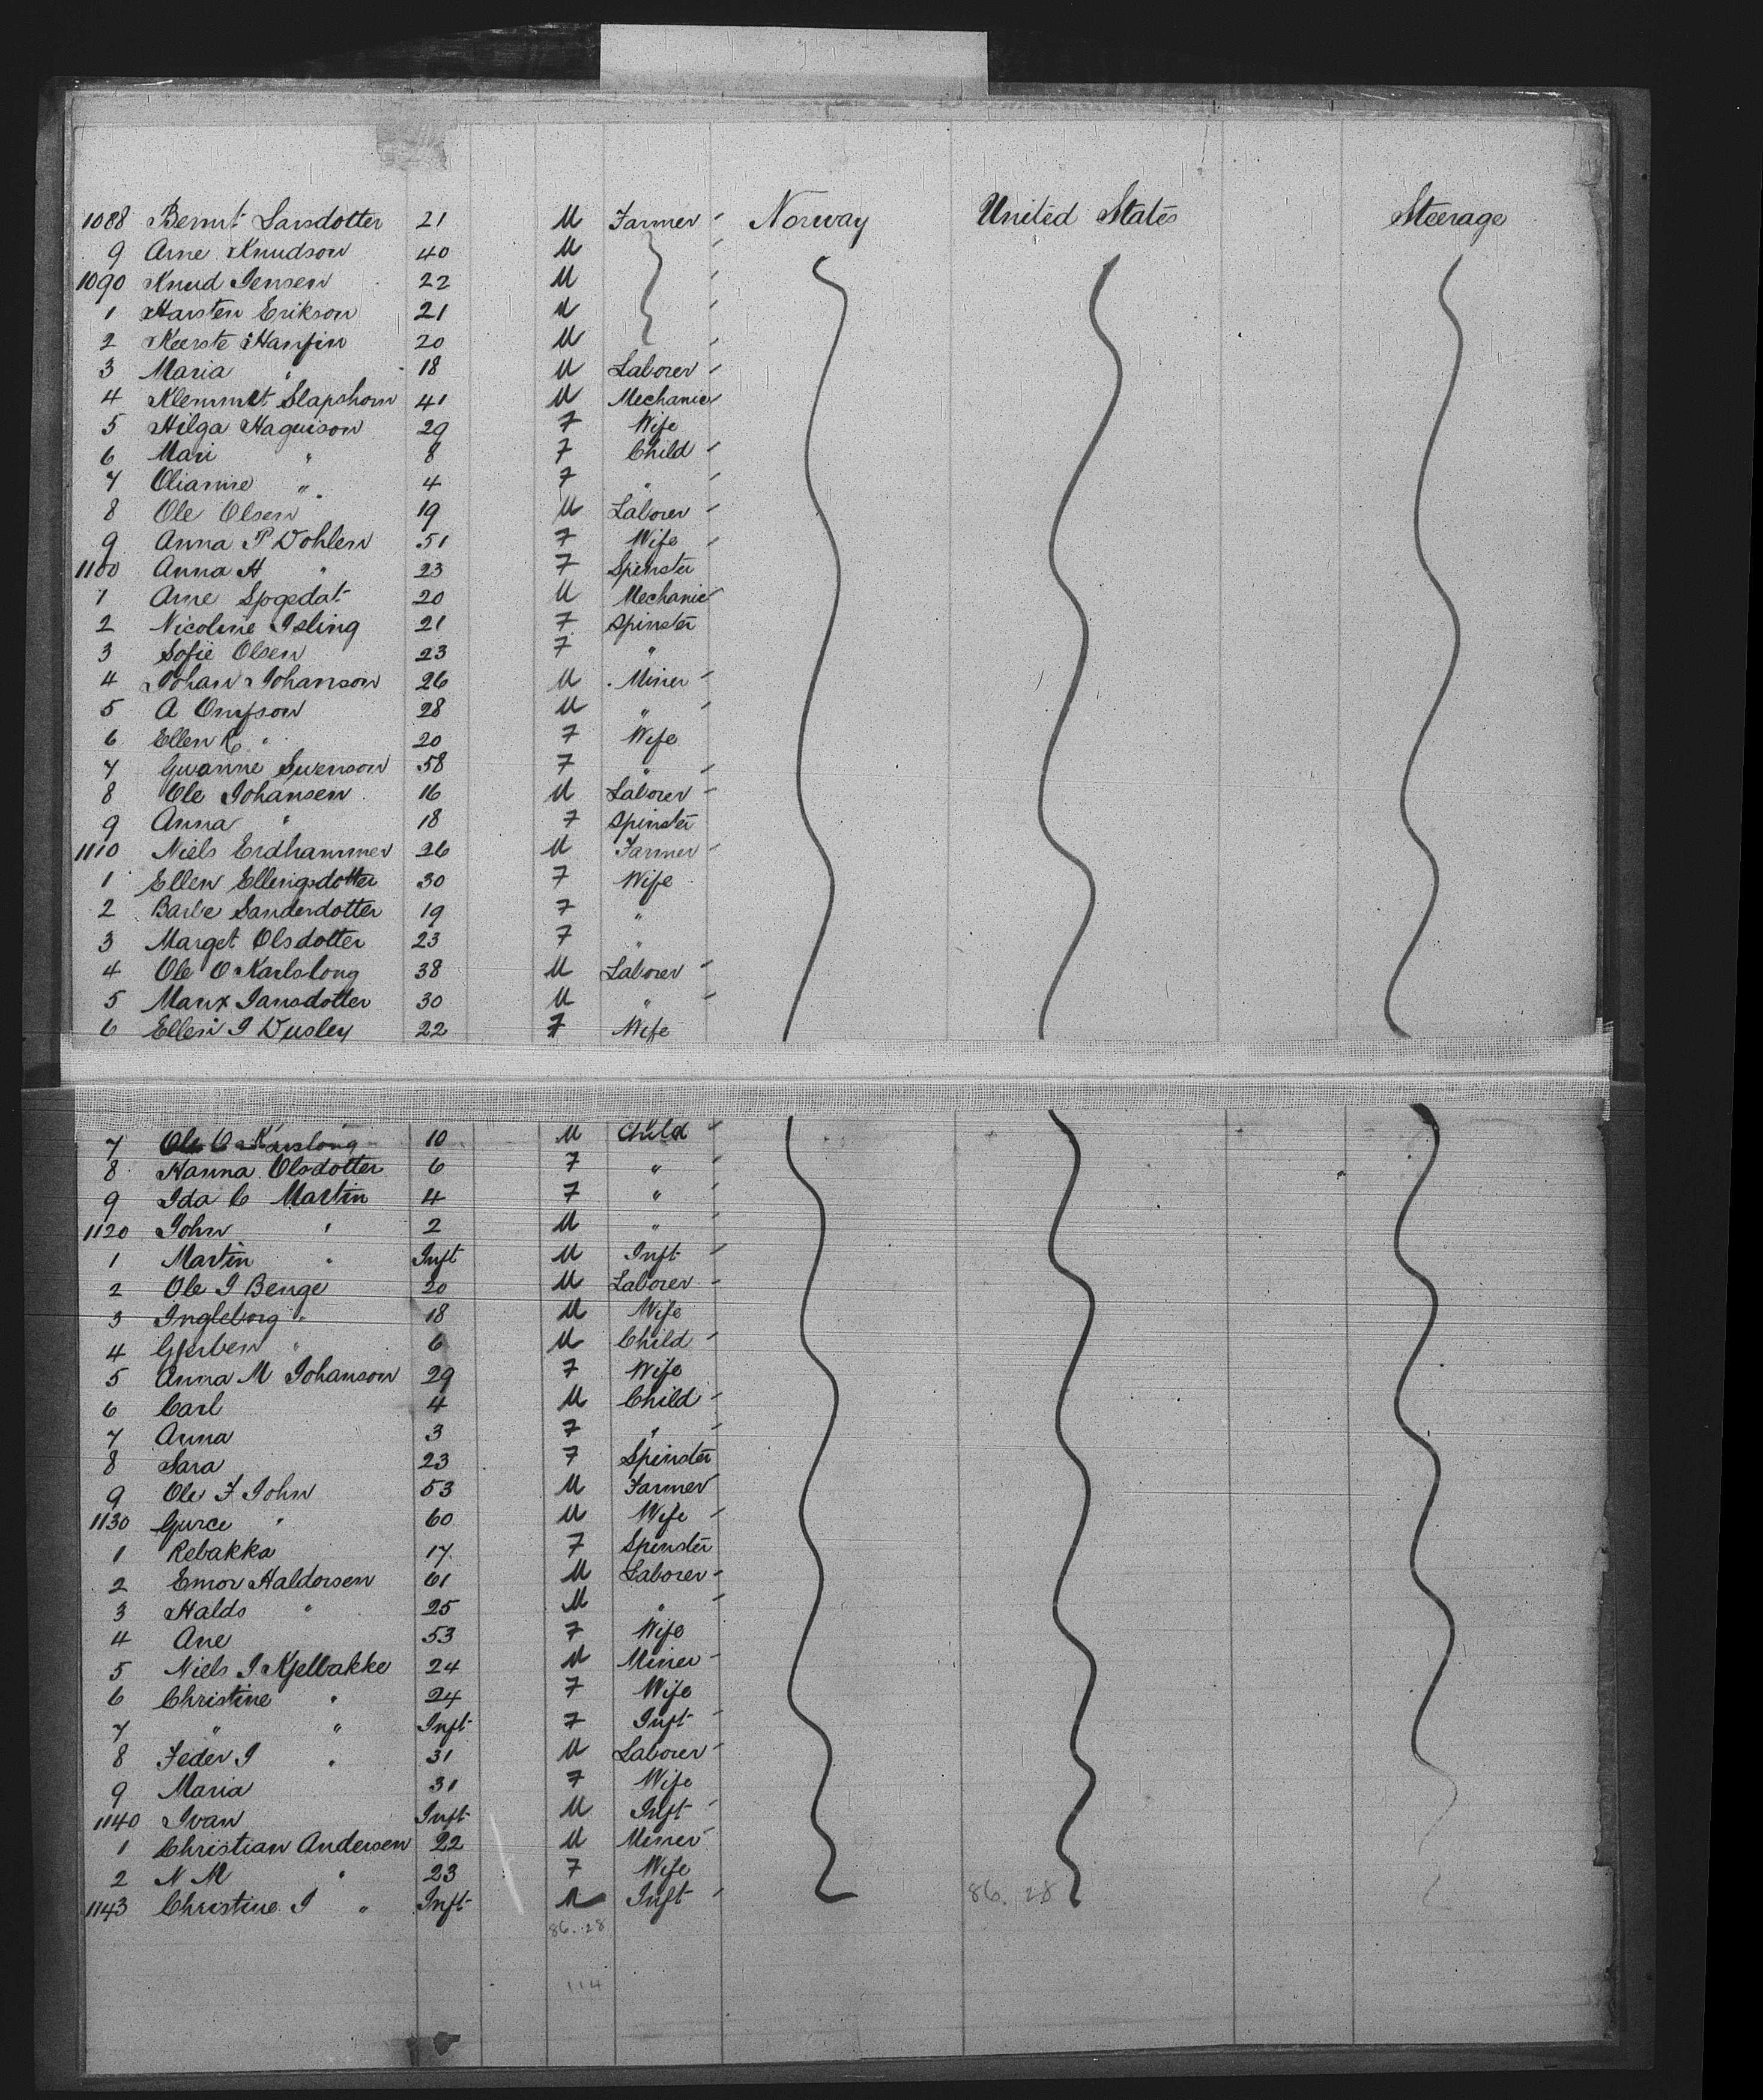 1088 Bernt Larsdotter 21 M Farmer Norway United States Steerage
9 Arne Knudson 40 M
1090 Knud Jensen 22 M
1 Karsten Erikson 21 M
2 Keerste Hanfin 20 M
3 Maria " 18 M Laborer
4 Klemmet Slapshorn 41 M Mechanic
5 Hilga Haguison 29 F Wife
6 Mari " 8 F Child
7 Olianne " 4 F "
8 Ole Olsen 19 M Laborer
9 Anna P Dohlen 51 F Wife
1100 Anna H " 23 F Spinster
1 Arne Spogedat 20 M Mechanic
2 Nicoline Isling 21 F Spinster
3 Sofie Olsen 23 F "
4 Johan Johanson 26 M Miner
5 A Omfson 28 M "
6 Ellen K " 20 F Wife
7 Gwanne Swenson 58 F "
8 Ole Johansen 16 M Laborer
9 Anna " 18 F Spinster
1110 Niels Erdhammer 26 M Farmer
1 Ellen Ellingsdotter 30 F Wife
2 Barbe Sanderdotter 19 F "
3 Marget Olsdotter 23 F "
4 Ole O Karlslong 38 M Laborer
5 Marix Jansdotter 30 M "
6 Ellen J Dusley 22 F Wife
7 Ole O Karslong 10 M Child
8 Hanna Olsdotter 6 F "
9 Ida C Martin 4 F "
1120 John " 2 M "
1 Martin " Inft M Inft
2 Ole J Benge 20 M Laborer
3 Ingleborg " 18 M Wife
4 Gjerben " 6 M Child
5 Anna M Johanson 29 F Wife
6 Carl 4 M Child
7 Anna 3 F "
8 Sara 23 F Spinster
9 Ole F John 53 M Farmer
1130 Gurce " 60 M Wife
1 Rebakka 17 F Spinster
2 Emor Haldorsen 61 M Laborer
3 Halds " 25 M "
4 Ane 53 F Wife
5 Niels J Kjelbakke 24 M Miner
6 Christine " 24 F Wife
7 " " Inft F Inft
8 Feder J " 31 M Laborer
9 Maria 31 F Wife
1140 Ivan Inft M Inft
1 Christian Andersen 22 M Miner
2 N M " 23 F Wife
1143 Christine J " Inft M Inft 86. 28
86. 28
114